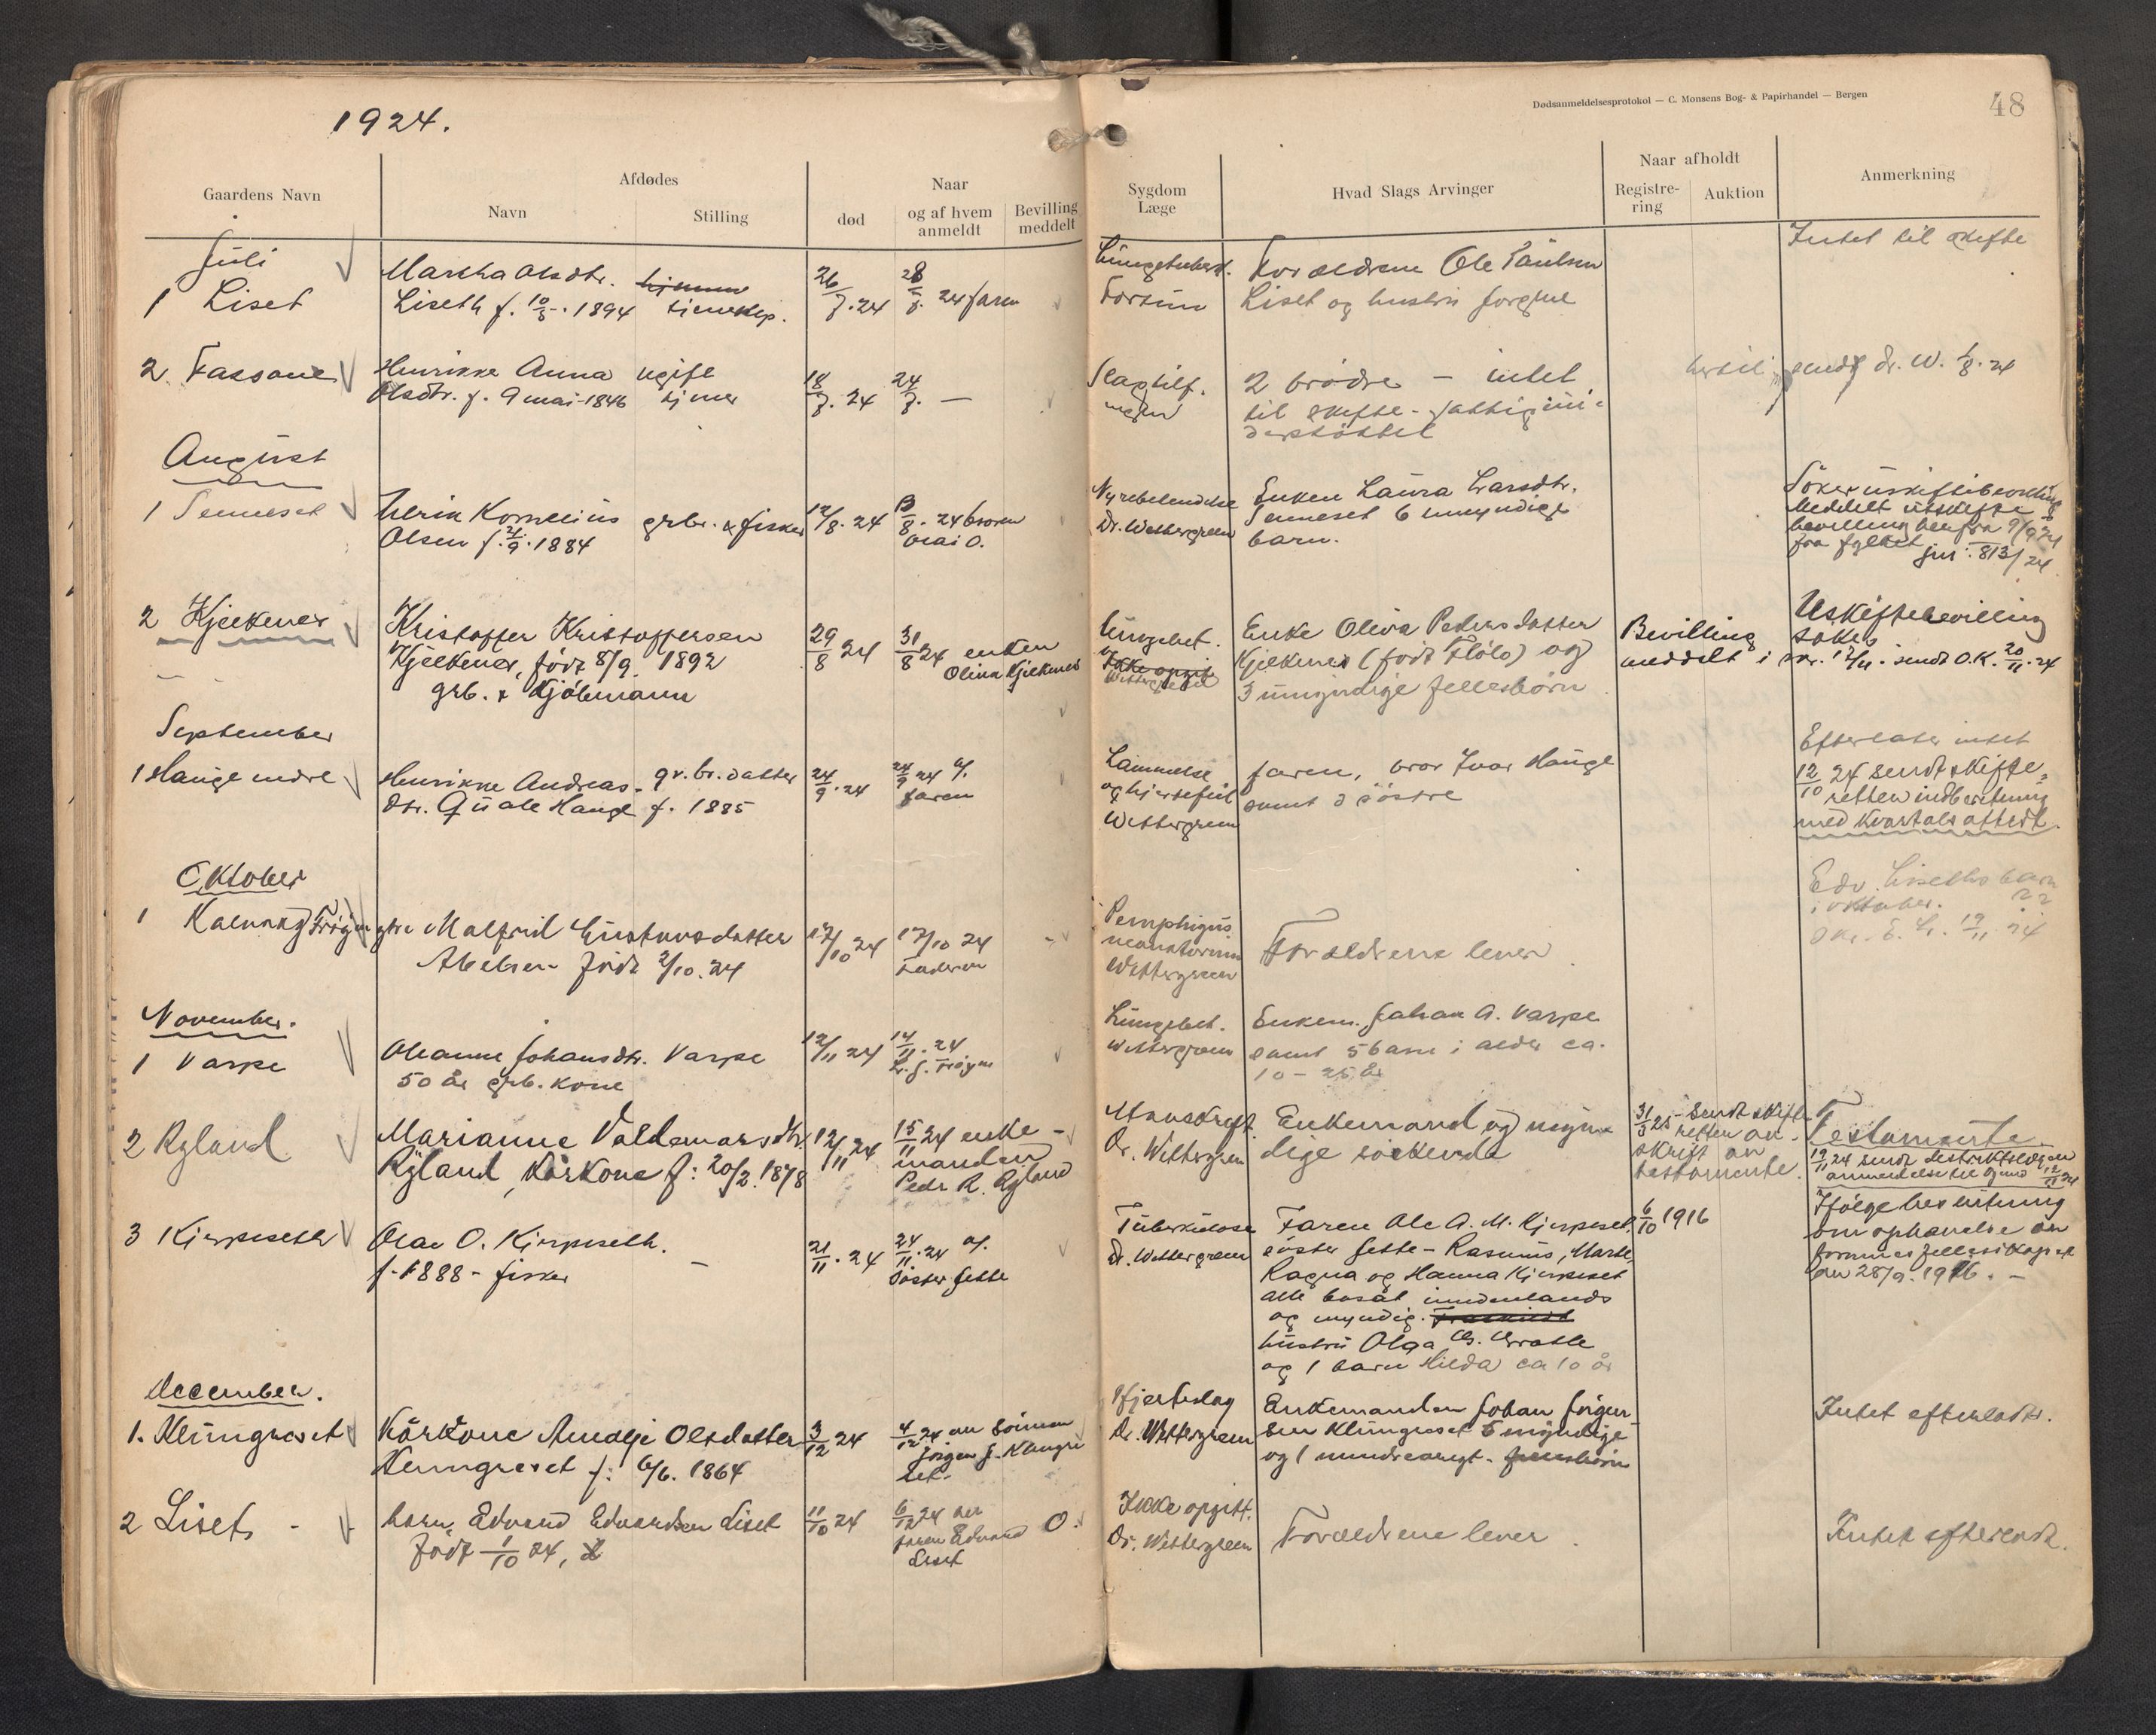 1924.
Dødsanmeldelsesprotokol — C. Monsens Bog- & Papirhandel — Bergen
48
Gaardens Navn
Afdødes
Navn
Stilling
død
Naar
og af hvem
anmeldt
Bevilling
meddelt
Sygdom
Læge
Hvad Slags Arvinger
Naar afholdt
Registre-
ring
Auktion
Anmerkning
Juli
1 Liset
Martha Olsdtr.
Liseth f. 10/3. 1894
26/7. 24
28/7. 24 faren
Forældrene Ole Paulsen
Liset og hustru
Intet til skifte
2
Henrikke Anna
Olsdtr. f. 9 mai 1846
ugift
18/7. 24
24/7. —
2 brødre — intet
til skifte - fattigun-
derstöttet
sendt dr. W. 1/8. 24
August
1 Senneset
Ulrik Kornelius
Olsen f. 21/9. 1884
grbr. & fisker
12/8. 24
13/8. 24 broren
Nyrebetendelse
Dr. Wettergreen
Enken Laura Larsdtr.
Senneset 6 umyndige
barn.
Söker uskiftebevilling
Meddelt uskifte
bevilling
fra fylket jnr. 813/24
2 Kjelkenes
Kristoffer Kristoffersen
Kjelkenes, född 8/9. 1892
grb. & Kjöbmann
29/8 24
31/8 24 enken
Olina Kjelkenes
Lungebet.
Wettergreen
Enke Oliva Pedersdatter
Kjelkenes (född Flölo) og
3 umyndige fellesbörn
Bevilling
meddelt i
Uskiftebevilling
sökes
skr. 12/11. sendt O.K. 20/11. 24
September
1 Hauge indre
Henrikke Andreas-
dtr. Quale Hauge f. 1885
gr.br. datter
24/9. 24
24/9 24 af
faren
Lammelse
og hjertefeil
Wettergreen
faren, bror Ivar Hauge
samt 2 söstre
Efterlater intet
12/10 24 sendt skifte-
retten indberetning
med kvartalsattest.
Oktober
1
Malfrid Gustavsdatter
född 2/10. 24
17/10 24
17/10 24
Faderen
Pemphigus
neonatorum
Wettergreen
Forældrene lever
Edv. Liseths barn
i oktober.
November.
1 Varpe
Oleanne Johansdtr. Varpe
50 år grb. kone
12/11 24
14/11. 24
Lungebet.
Wettergreen
Enkem. Johan A. Varpe
samt 5 barn i alder ca.
10 - 25 år
2 Rylan​d
Marianne Valdemarsdtr.
Rylan​d, kårkone f: 20/2. 1878
12/11 24
15/11 24 enke-
manden
Peder R. Ryland
Dr. Wettergreen
Enkemand og myn-
dige
31/3 25 - Sendt skifte
retten av-
skrift av
testamente.
Testamente.
19/11 24 sendt
3 Kjerpeseth
Olai O. Kjerpeseth.
f. 1888 - fisker
21/11. 24
24/11. 24 af
söster Jette
Tuberkulose
Dr. Wettergreen
Faren Ole A. M. Kjerpeset.
söster Jette - Rasmus, Marte,
Ragna og Hanna Kjerpeset
alle bosat inndenlands
og myndig.
hustru Olga
og 1 barn Hilda ca 10 år
6/10 1916
Ifölge beslutning
om ophævelse av
formuesfellesskapet
av 28/9. 1916. -
December.
1. Klungreset
Kårkone Amalie Olsdatter
Klungreset f: 6/6. 1864
3/12 24
4/12 24 av sönnen
Jörgen J. Klungre
set.
Hjerteslag
Dr. Wettergreen
Enkemanden Johan Jörgen-
sen Klungreset 5 myndige
og 1 mindreårigt.
2 Liset
barn Edvard Edvardsen Liset
född 1/10 24,
11/10 24
6/12 24 av
faren Edvard
Liset
O.
Ikke opgitt.
Dr. Wettergreen
Forældrene lever
Intet efterladt.
Intet efterladt.